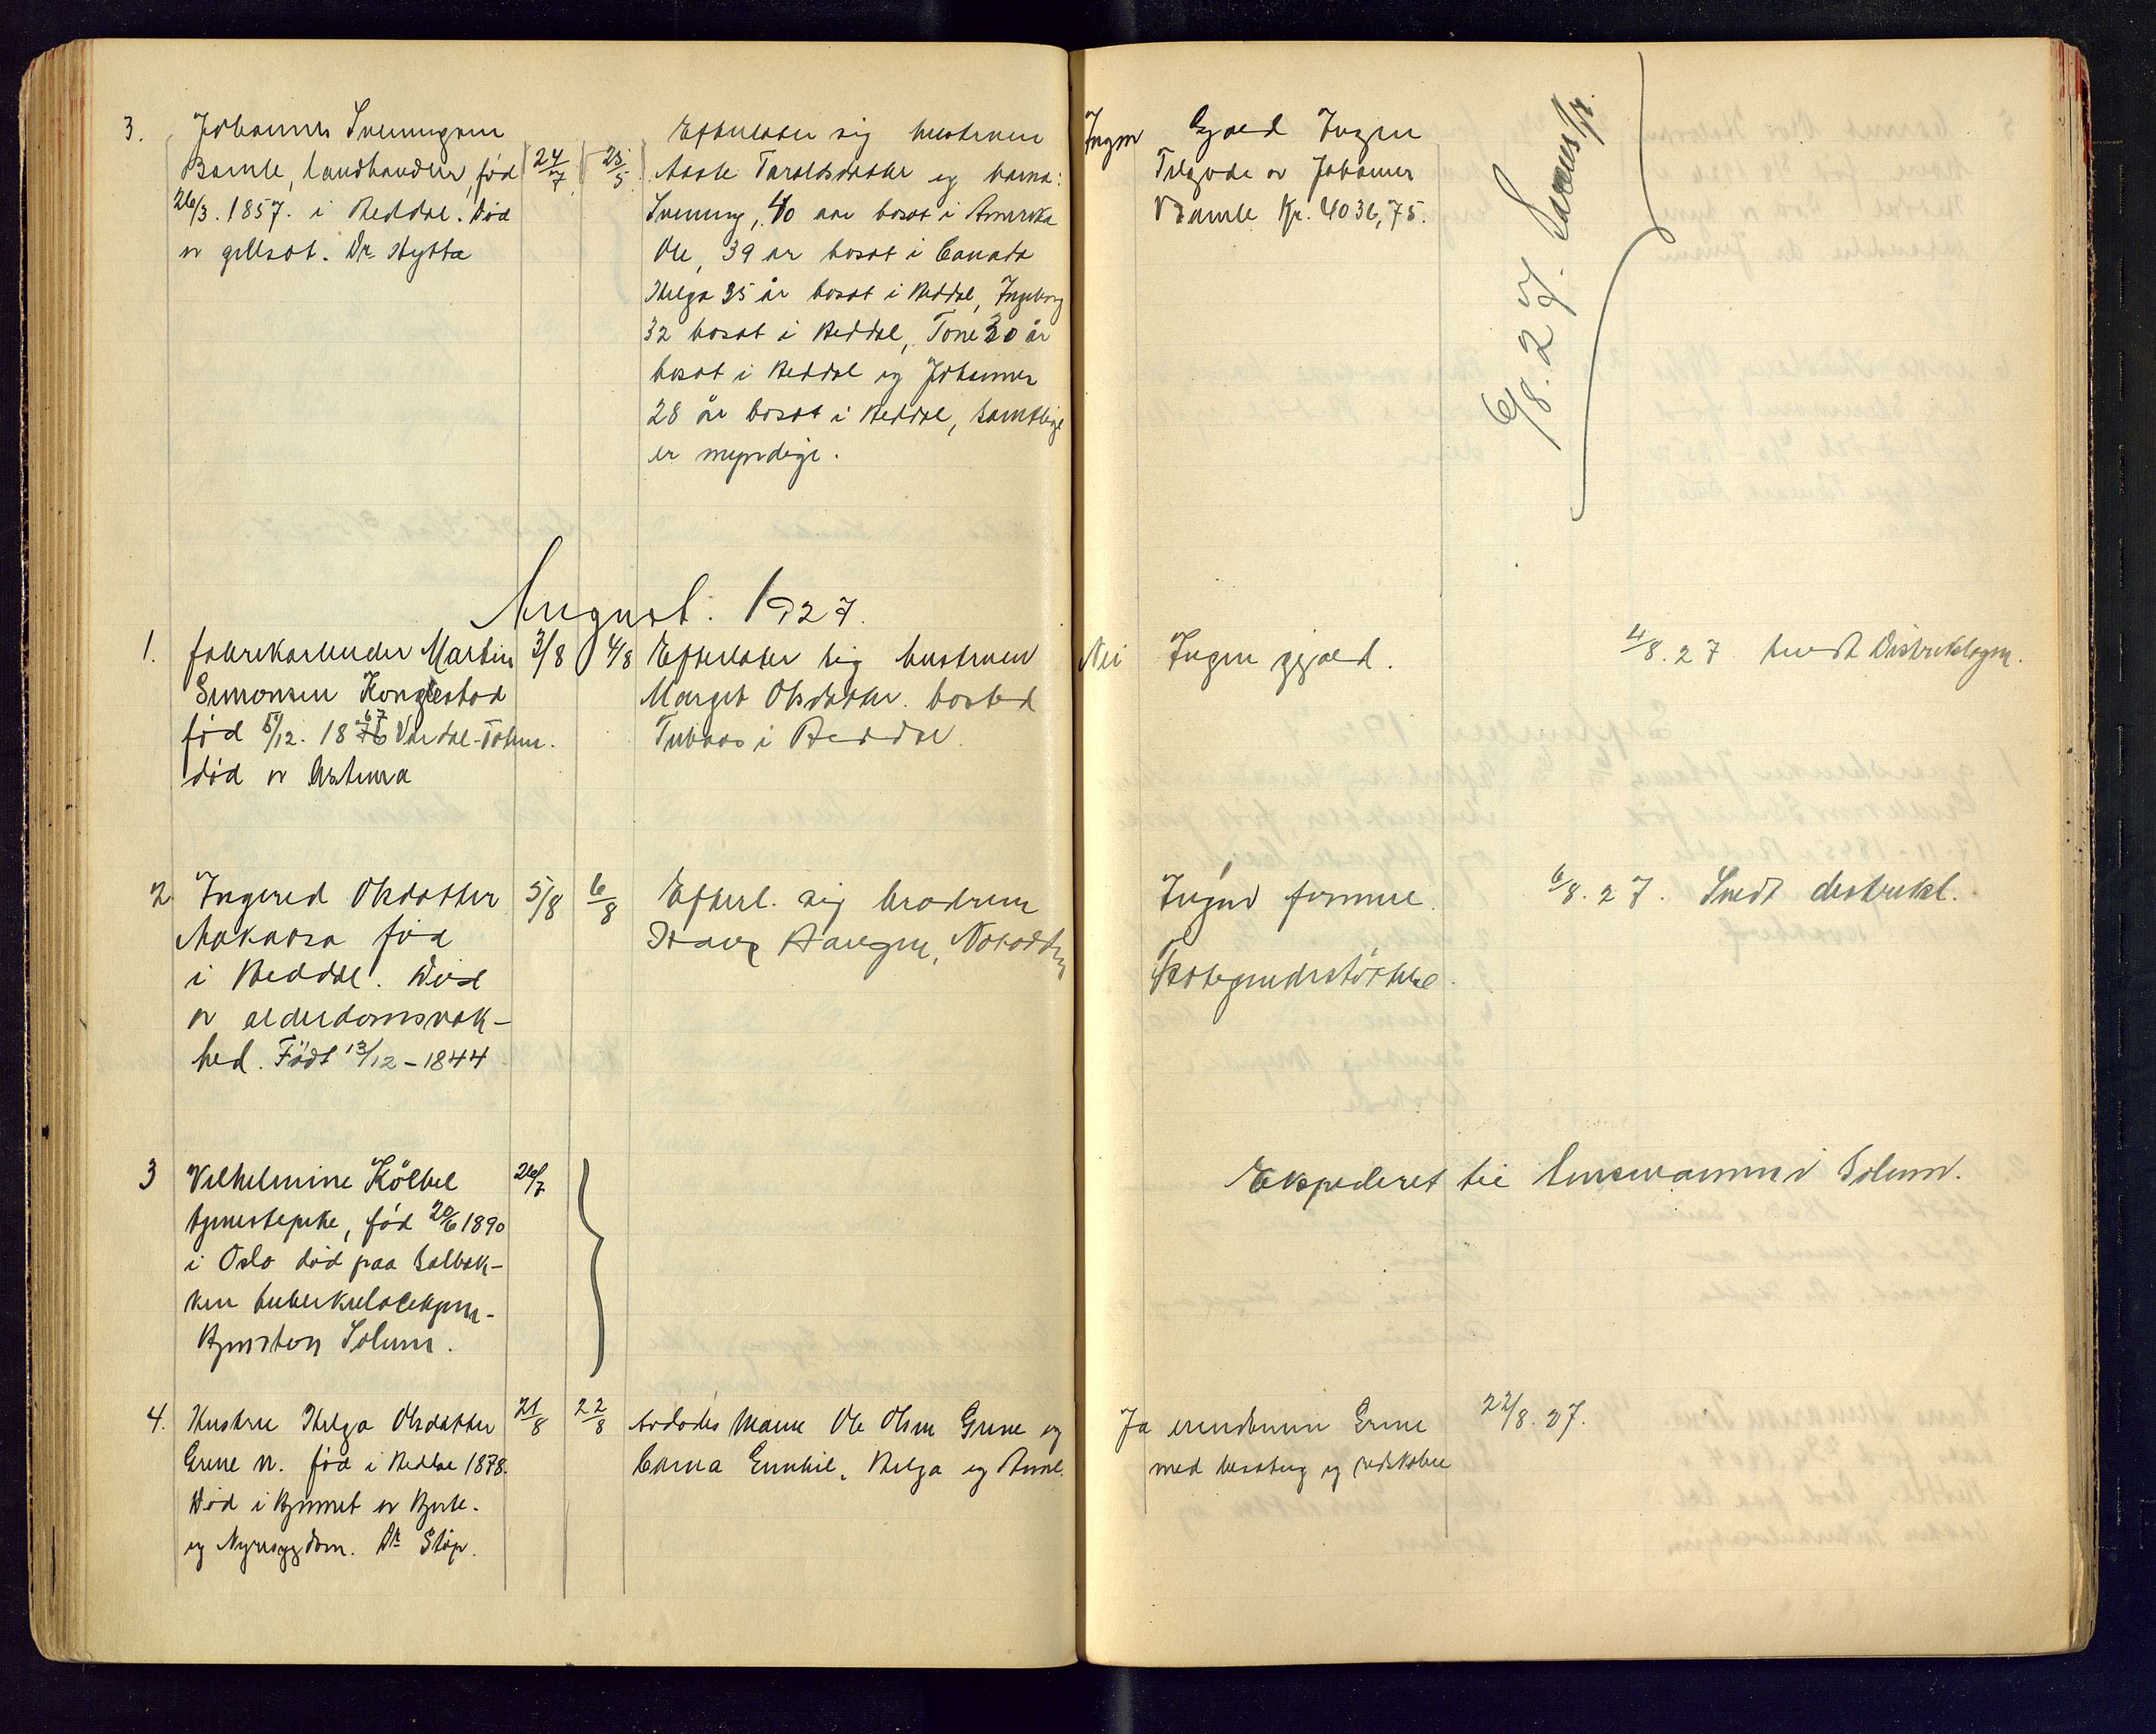 3. Johannes Sveinungsen
Bamle, landhandler, født
26/3. 1857. i Heddal. Død
av gulsot. Dr. Hytta
24/7
25/5
Efterlater sig hustruen
Aaste Taraldsdatter og barna:
Sveinung, 40 aar bosat i Amerika
Ole, 39 år bosat i Canada
Helga 35 år bosat i Heddal, Ingeborg
32 bosat i Heddal, Tone 30 år
bosat i Heddal og Johannes
28 år bosat i Heddal, samtlige
er myndige.
Ingen
Gjæld Ingen
Tilgode av Johannes
Bamle Kr. 4036,75.
6/8. 27.
August. 1927.
1. fabrikarbeider Martin
Simonsen Konglestad
67
født 5/12. 1876 Vardal-Toten.
død av Astma
3/8
4/8
Efterlater sig hustruen
Margit Olsdatter. bosted
i Heddal.
Nei
Ingen gjæld.
4/8. 27 sendt Distriktslægen.
2 Ingered Olsdatter
født
i Heddal. Død
av alderdomsvak-
hed. Født 13/12 - 1844
5/8
6/8
Efterl. sig broderen
Haavegen, Notodden
Ingen formue.
6/8. 27. Sendt distrikt.
3 Vilhelmine Kölbel
tjenestepike, født 20/6 1890
i Oslo død paa Solbak-
ken tuberkulosehjem-
Hjemsted Solum.
26/7
Ekspederet til lensmannen i Solum.
4. Hustru Helga Olsdatter
Grene n. født i Heddal 1878.
Død i hjemmet av Hjerte-
og Nyresygdom. Dr Støp.
21/8
22/8
Avdødes Mann Ole Olsen Grene og
barna Gunhil, Helga og Anne.
Ja eiendommen Grene
med besetning og redskaber
22/8. 27.